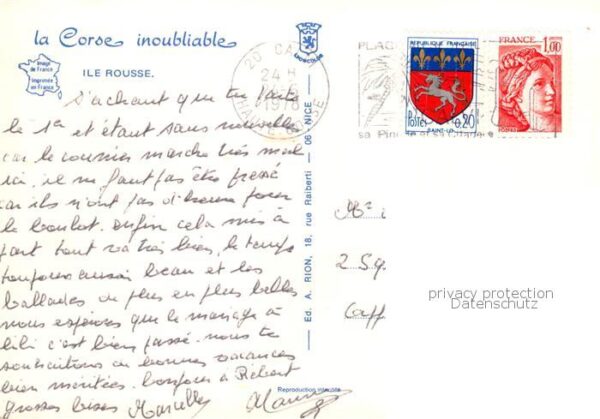 la Corse inoubliable
Image de France
Imprimée en France
ILE ROUSSE.
S'achant que tu pars
le 1er et étant sans nouvelles
car le courrier marche très mal
ici, il ne faut pas être pressé
car ils n'ont pas d'heures pour
le boulot. enfin cela mis à
part tout va très bien, le temps
toujours aussi beau et les
ballades de plus en plus belles
nous espérons que le mariage à
lili c'est bien passé. nous te
souhaitons de bonnes vacances
bien méritées. bonjour à Robert
grosses bises Marcelle
Ed. A. RION, 18, rue Raiberti - 06 NICE
Reproduction interdite
20 CA
24 H
PLAG
REPUBLIQUE FRANÇAISE
Postes 0,20
SAINT-LO
FRANCE
1,00
2 Sq
privacy protection
Datenschutz